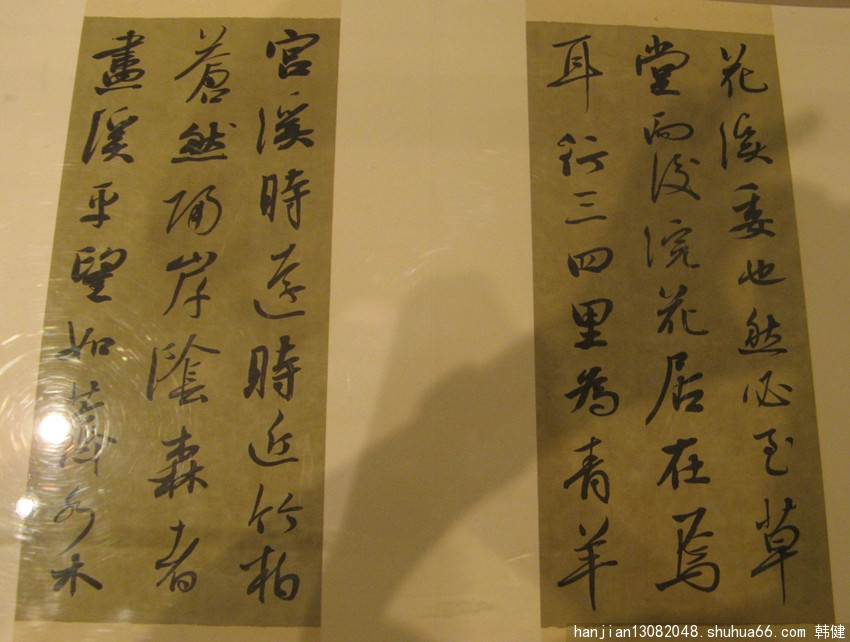 花溪委也然必至草
堂而後浣花居在焉
耳行三四里為青羊
宮溪時遠時近竹柏
蒼然隔岸陰森者
盡溪平望如薺水木
hanjian13082048.shuhua66.com 韩健